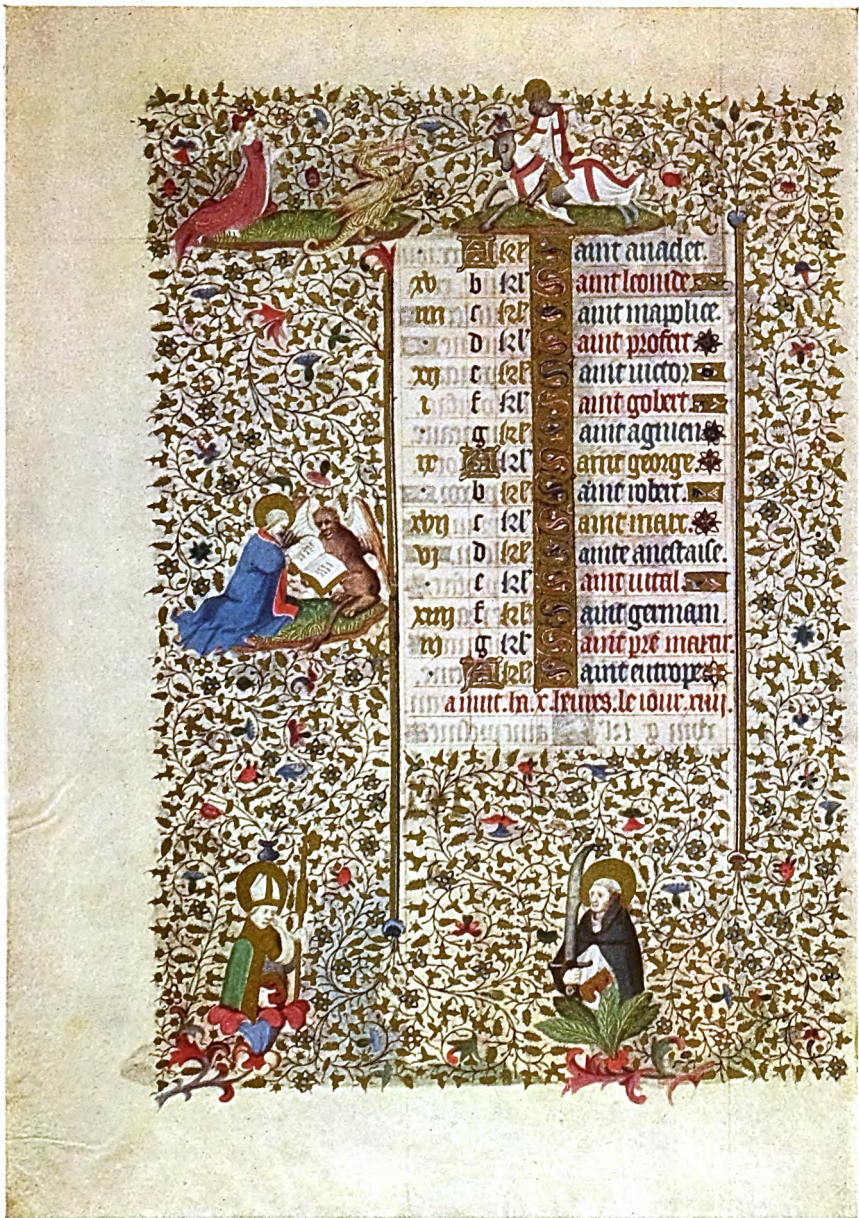 A kl' S aint anaclet.
xv b kl' S aint leonide
iiij c kl' S aint mapolice.
d kl' S aint profect
xij e kl' S aint victor
i f kl' S aint gobert
g kl' S aint agnien
ix A kl' S aint george.
b kl' S aint robert.
xvij c kl' S aint marc.
vj d kl' S ainte anestaise.
e kl' S aint vital
xiiij f kl' S aint germain.
iij g kl' S aint pre martir.
A kl' S aint eutrope
a nuit. ha. x. heures. le iour. xiiij.